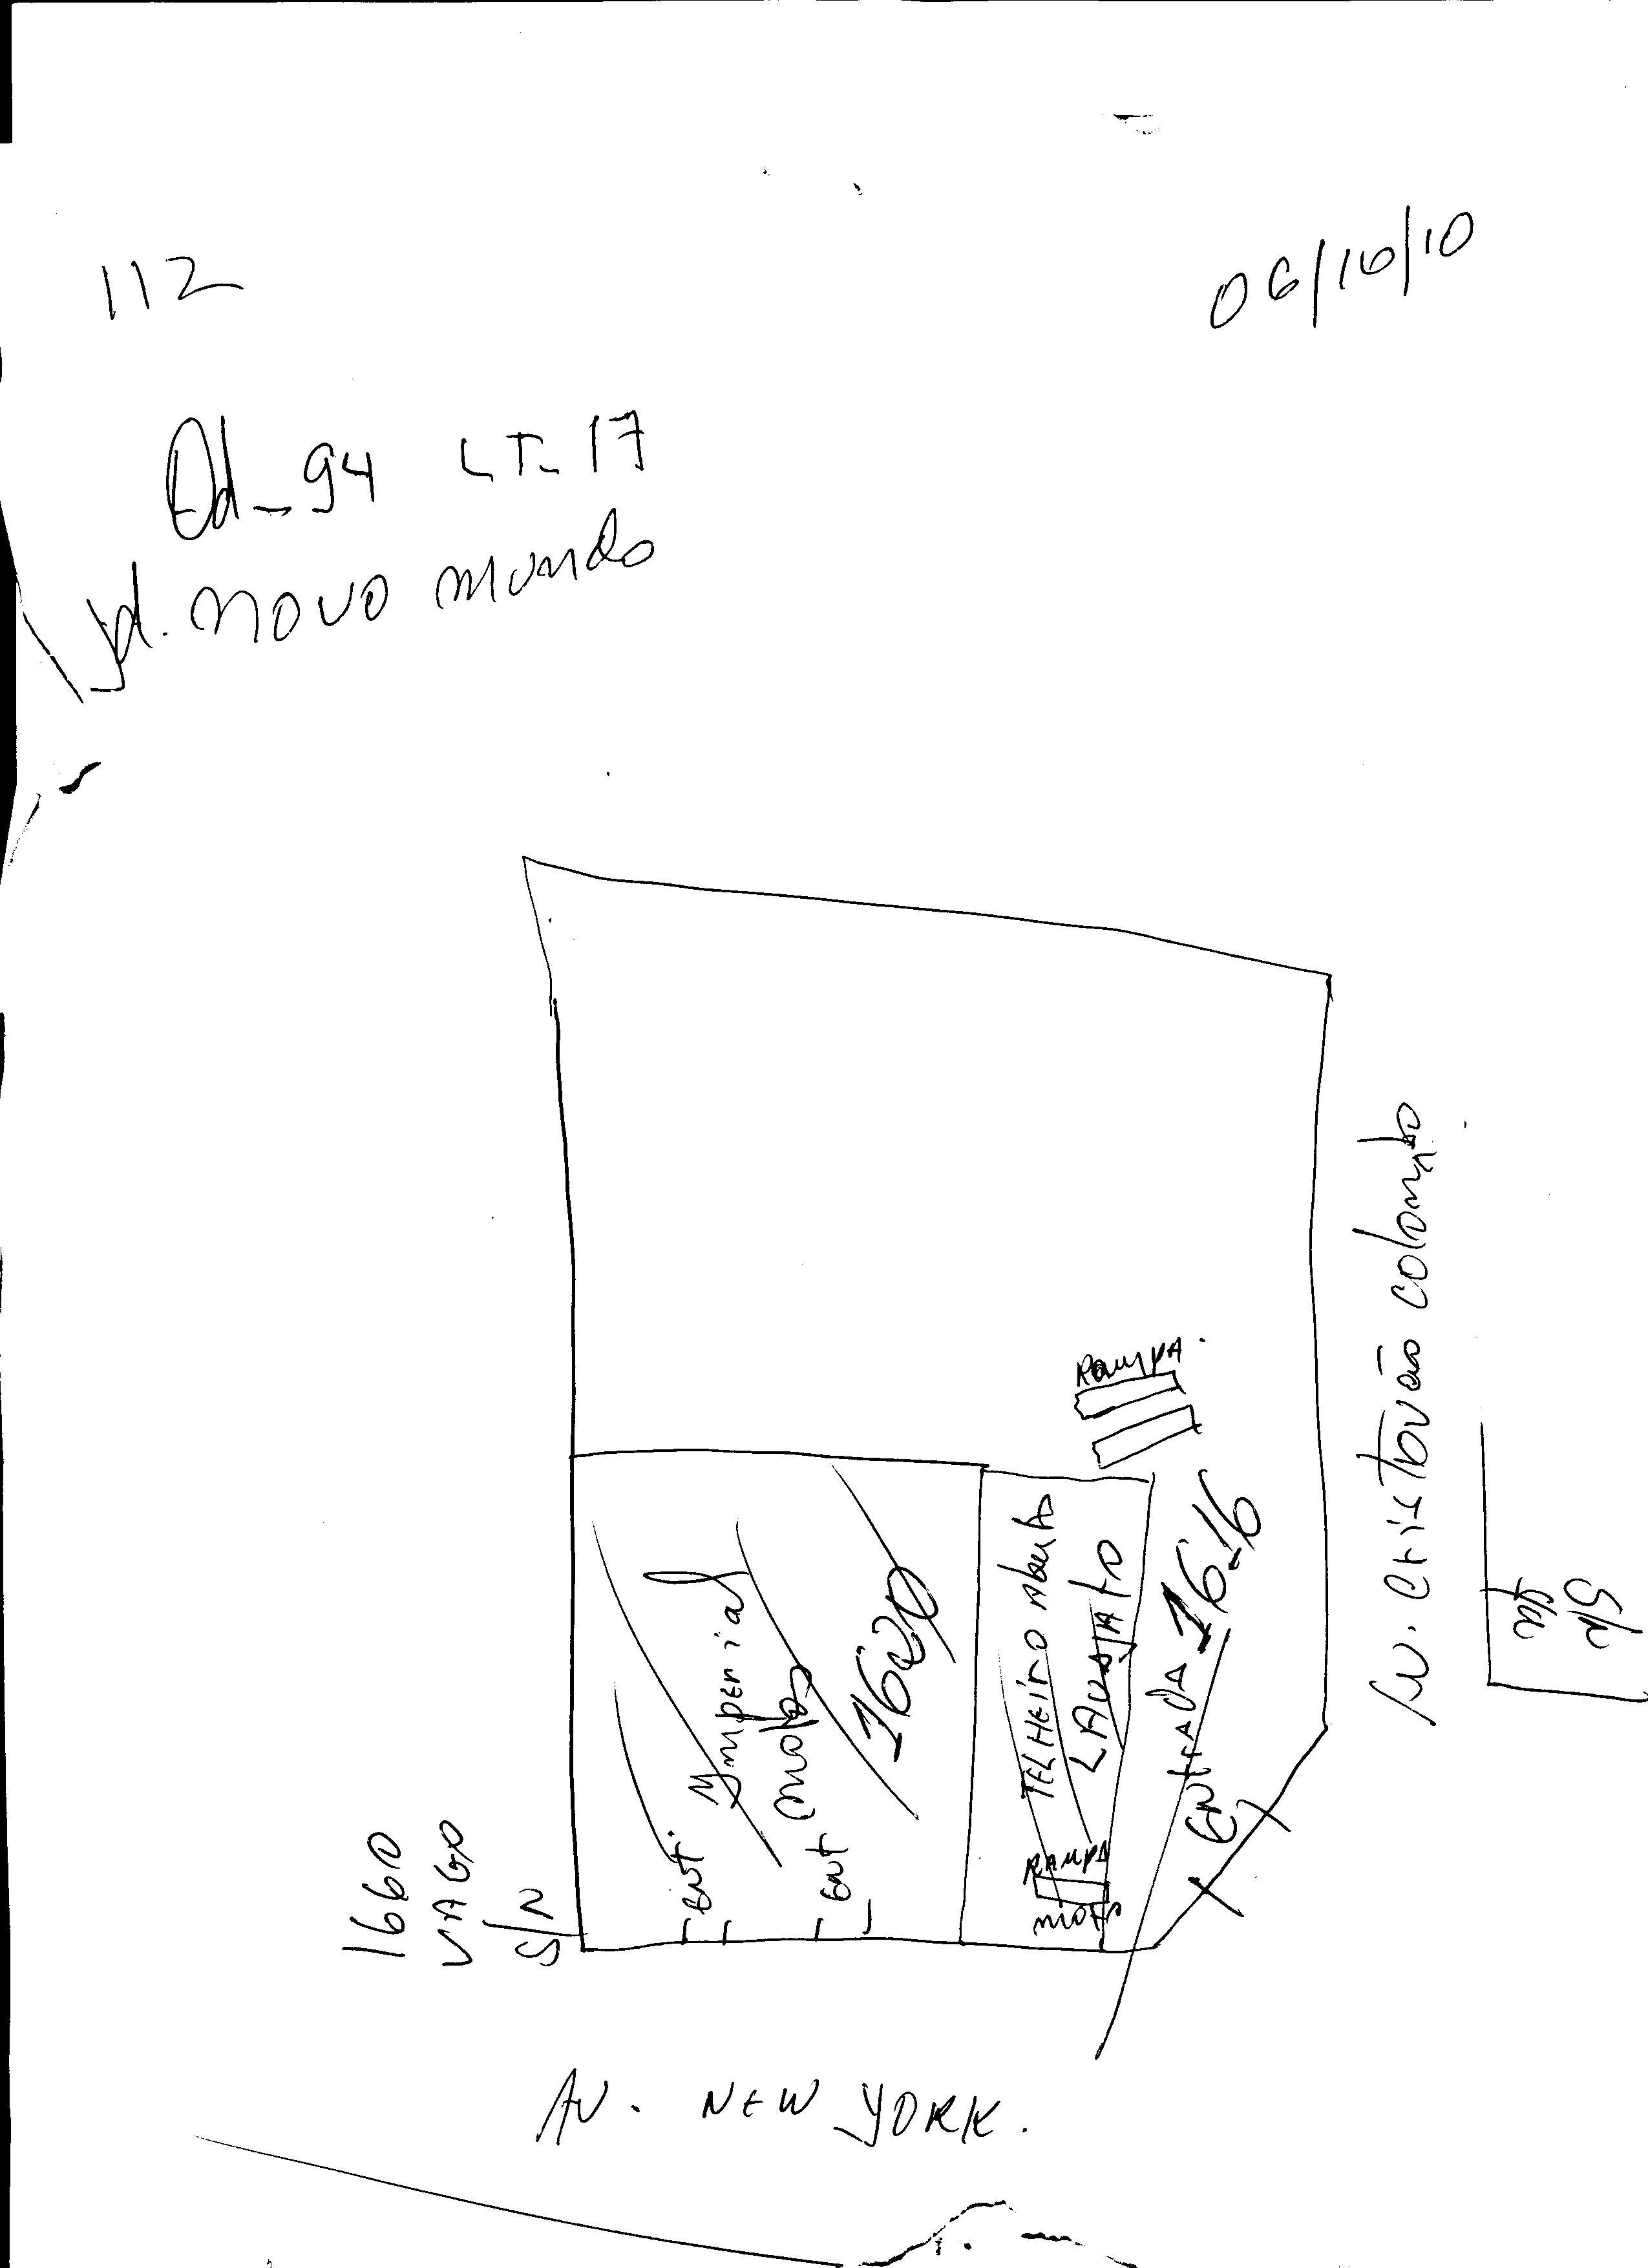 112
06/10/10
Qd_94 LT_17
Jd. novo mundo
Rampa.
Av. Cristovão colombo
Imperial
motos
1620
Ent.
Ent
TELHEIRO Aberto
LAVAJATO
RAMPA
motos
ENTRADA 1616
1660
VAGO
S/N
S/N
AV. NEW YORK.